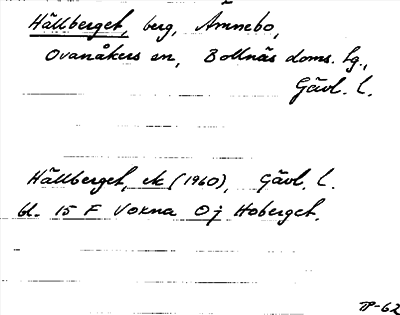 Hällberget, berg, Ämnebo,
Ovanåkers sn, Bollnäs doms. lg.,
Gävl. l.
Hällberget, ek (1960), Gävl. l.
bl. 15 F Voxna 0j Hoberget.
TP-62